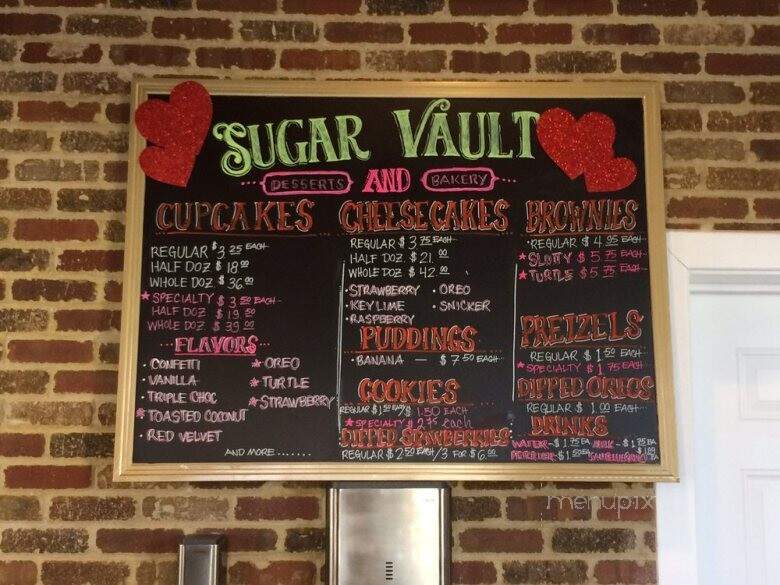 SUGAR VAULT
DESSERTS AND BAKERY
CUPCAKES
REGULAR $3.25 EACH
HALF DOZ $18.00
WHOLE DOZ $36.00
★SPECIALTY $3.50 EACH
HALF DOZ $19.50
WHOLE DOZ $39.00
FLAVORS
• CONFETTI
• VANILLA
• TRIPLE CHOC
★TOASTED COCONUT
• RED VELVET
★OREO
★TURTLE
★STRAWBERRY
AND MORE.......
CHEESECAKES
REGULAR $3.75 EACH
HALF DOZ $21.00
WHOLE DOZ $42.00
• STRAWBERRY
• KEY LIME
• RASPBERRY
• OREO
• SNICKER
PUDDINGS
• BANANA — $7.50 EACH
COOKIES
REGULAR 1.50 EACH
★SPECIALTY $2.75 each
DIPPED STRAWBERRIES
REGULAR $2.50 EACH/3 FOR $6.00
BROWNIES
• REGULAR $4.95 EACH
★SLUTTY $5.75 EACH
★TURTLE $5.75 EACH
PRETZELS
REGULAR $1.50 EACH
★SPECIALTY $1.75 EACH
DIPPED OREOS
REGULAR $1.00 EACH
DRINKS
WATER - $1.75 EA MILK - $1.75 EA
menupix